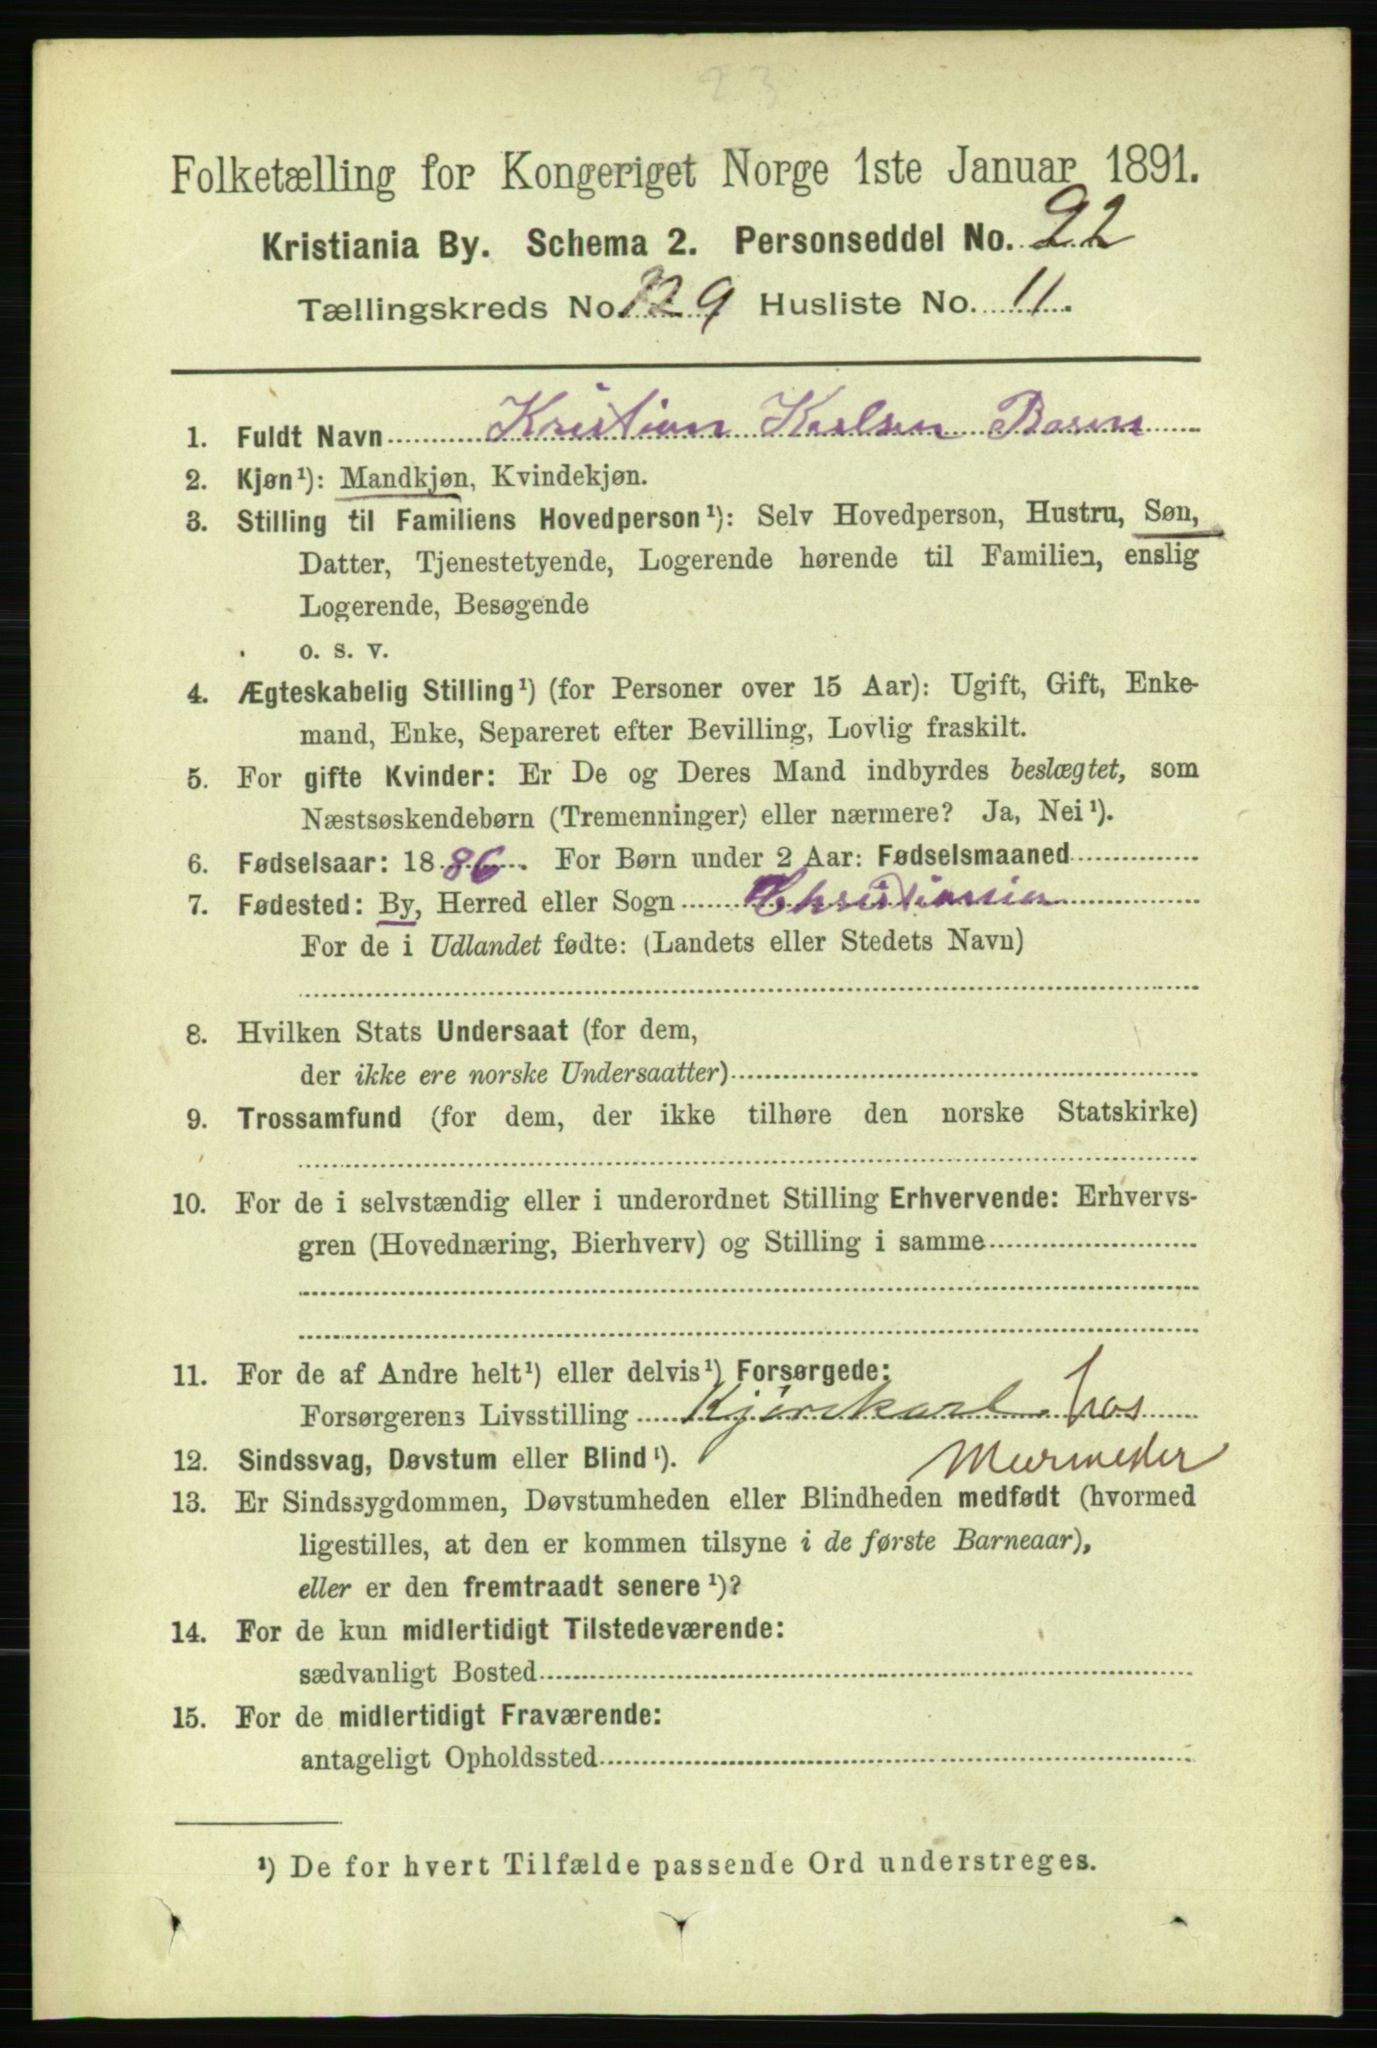 23
Folketælling for Kongeriget Norge 1ste Januar 1891.
Kristiania By. Schema 2. Personseddel No. 22
Tællingskreds No. 129 Husliste No. 11.
1. Fuldt Navn Kristian Karlsen
2. Kjøn¹): Mandkjøn, Kvindekjøn.
3. Stilling til Familiens Hovedperson¹): Selv Hovedperson, Hustru, Søn,
Datter, Tjenestetyende, Logerende hørende til Familien, enslig
Logerende, Besøgende
o. s. v.
4. Ægteskabelig Stilling¹) (for Personer over 15 Aar): Ugift, Gift, Enke-
mand, Enke, Separeret efter Bevilling, Lovlig fraskilt.
5. For gifte Kvinder: Er De og Deres Mand indbyrdes beslægtet, som
Næstsøskendebørn (Tremenninger) eller nærmere? Ja, Nei¹).
6. Fødselsaar: 1886. For Børn under 2 Aar: Fødselsmaaned
7. Fødested: By, Herred eller Sogn Christiania
For de i Udlandet fødte: (Landets eller Stedets Navn)
8. Hvilken Stats Undersaat (for dem,
der ikke ere norske Undersaatter)
9. Trossamfund (for dem, der ikke tilhøre den norske Statskirke)
10. For de i selvstændig eller i underordnet Stilling Erhvervende: Erhvervs-
gren (Hovednæring, Bierhverv) og Stilling i samme
11. For de af Andre helt¹) eller delvis¹) Forsørgede:
Forsørgerens Livsstilling Kjørekarl hos
Murmester
12. Sindssvag, Døvstum eller Blind¹).
13. Er Sindssygdommen, Døvstumheden eller Blindheden medfødt (hvormed
ligestilles, at den er kommen tilsyne i de første Barneaar),
eller er den fremtraadt senere¹)?
14. For de kun midlertidigt Tilstedeværende:
sædvanligt Bosted
15. For de midlertidigt Fraværende:
antageligt Opholdssted
¹) De for hvert Tilfælde passende Ord understreges.